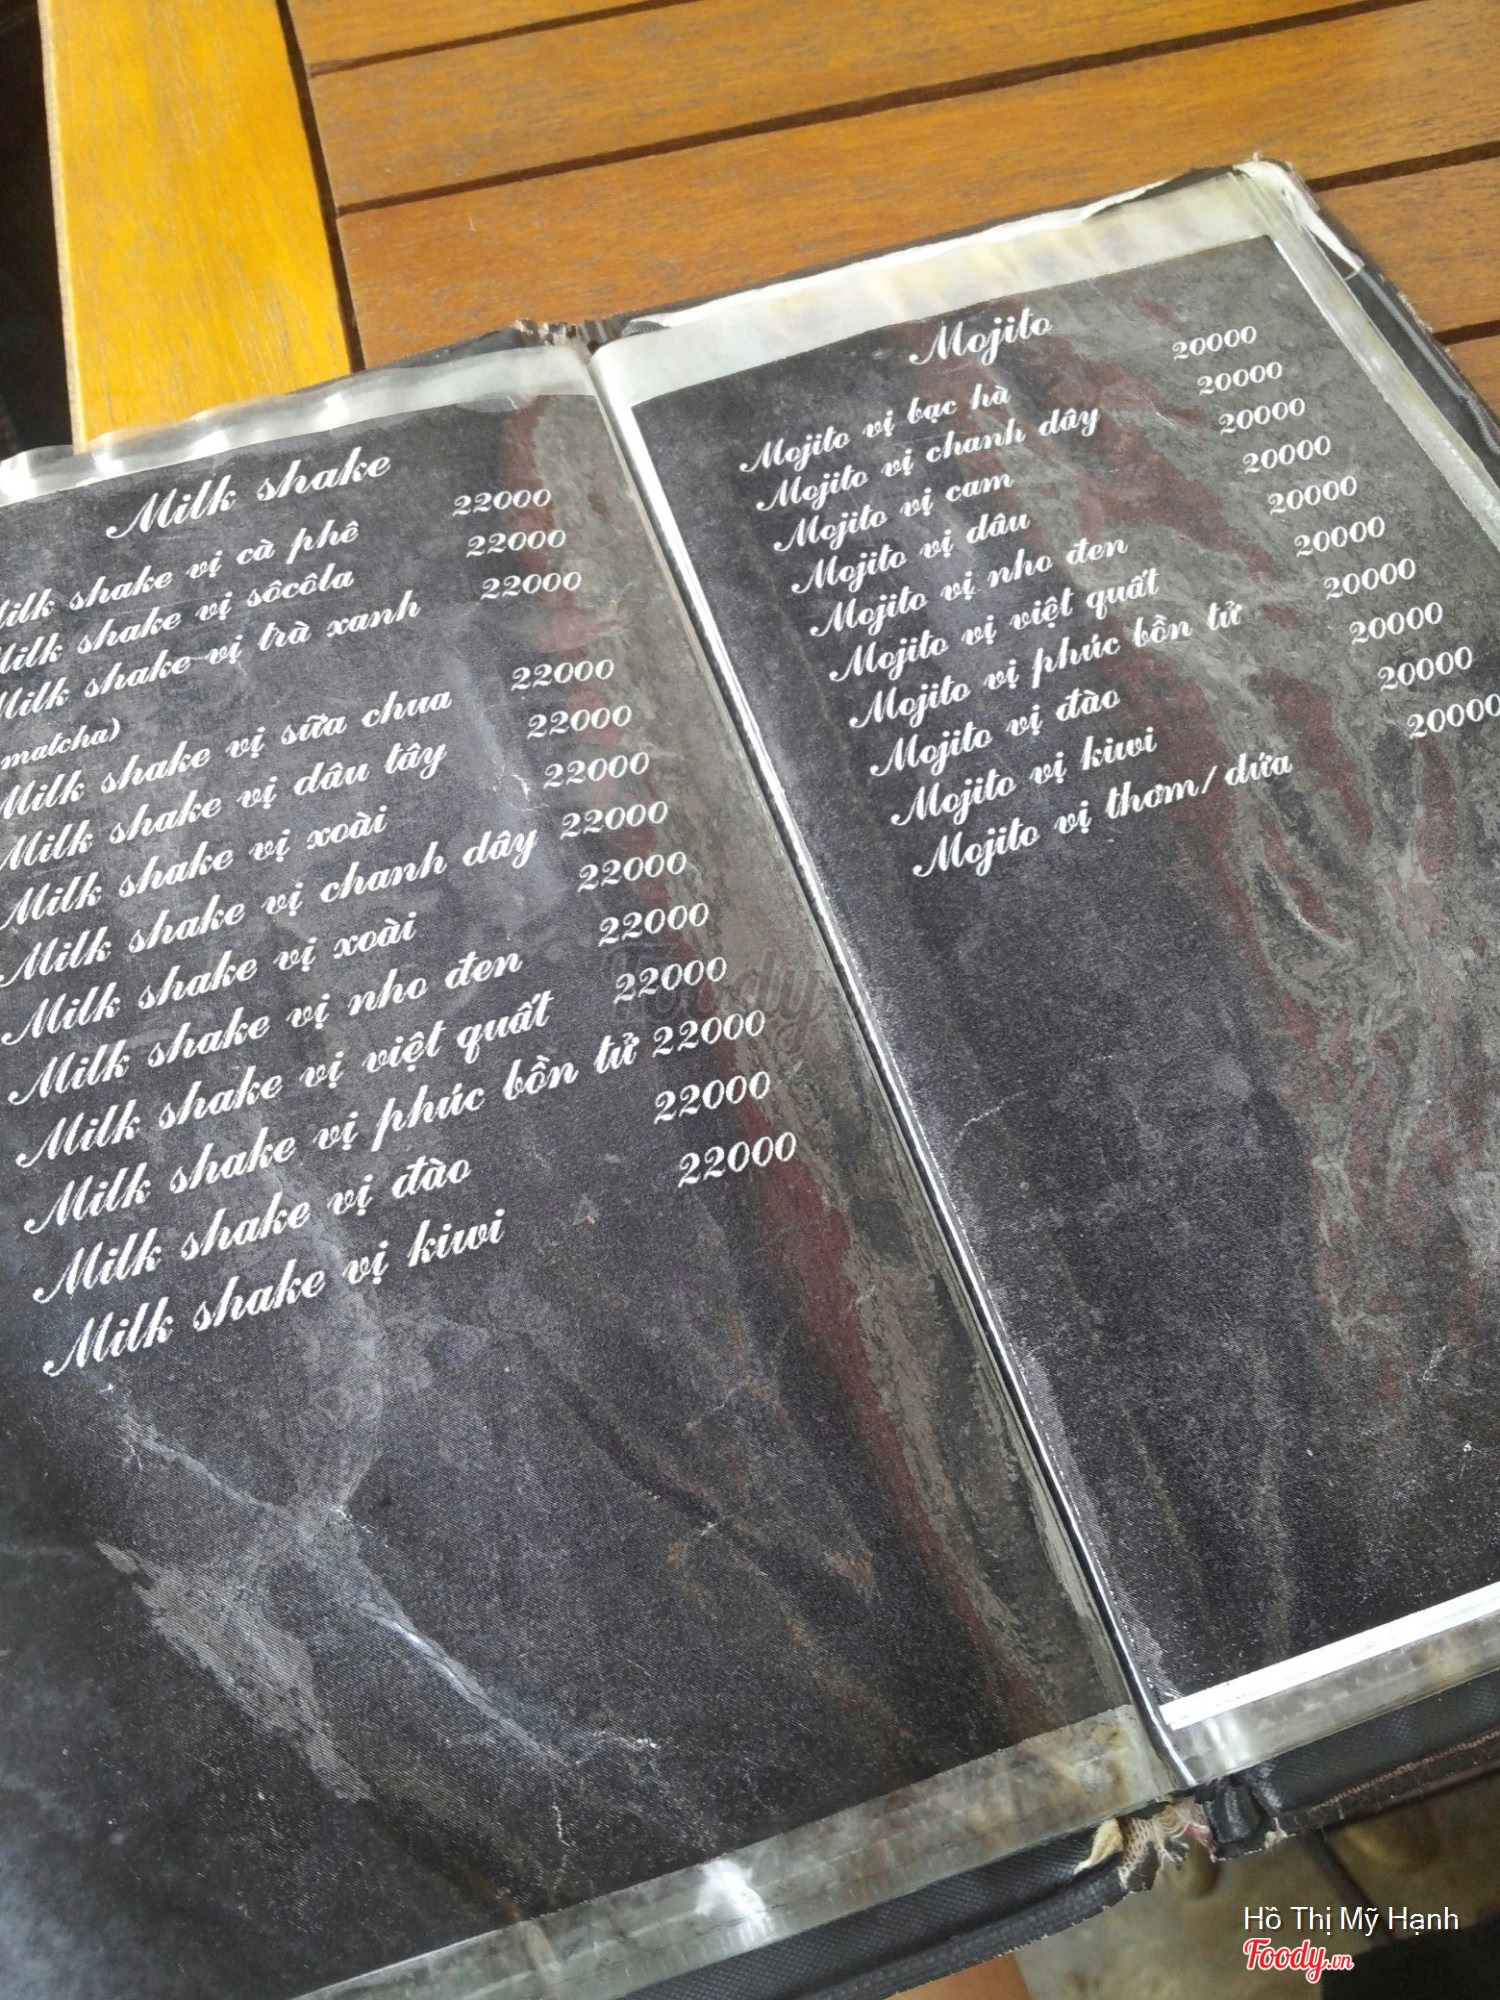 Milk shake
Milk shake vị cà phê 22000
Milk shake vị sôcôla 22000
Milk shake vị trà xanh 22000
matcha)
Milk shake vị sữa chua 22000
Milk shake vị dâu tây 22000
Milk shake vị xoài 22000
Milk shake vị chanh dây 22000
Milk shake vị xoài 22000
Milk shake vị nho đen 22000
Milk shake vị việt quất 22000
Milk shake vị phúc bồn tử 22000
Milk shake vị đào 22000
Milk shake vị kiwi 22000
Mojito
Mojito vị bạc hà 20000
Mojito vị chanh dây 20000
Mojito vị cam 20000
Mojito vị dâu 20000
Mojito vị nho đen 20000
Mojito vị việt quất 20000
Mojito vị phúc bồn tử 20000
Mojito vị đào 20000
Mojito vị kiwi 20000
Mojito vị thơm/dứa 20000
Foody
Hồ Thị Mỹ Hạnh
Foody.vn